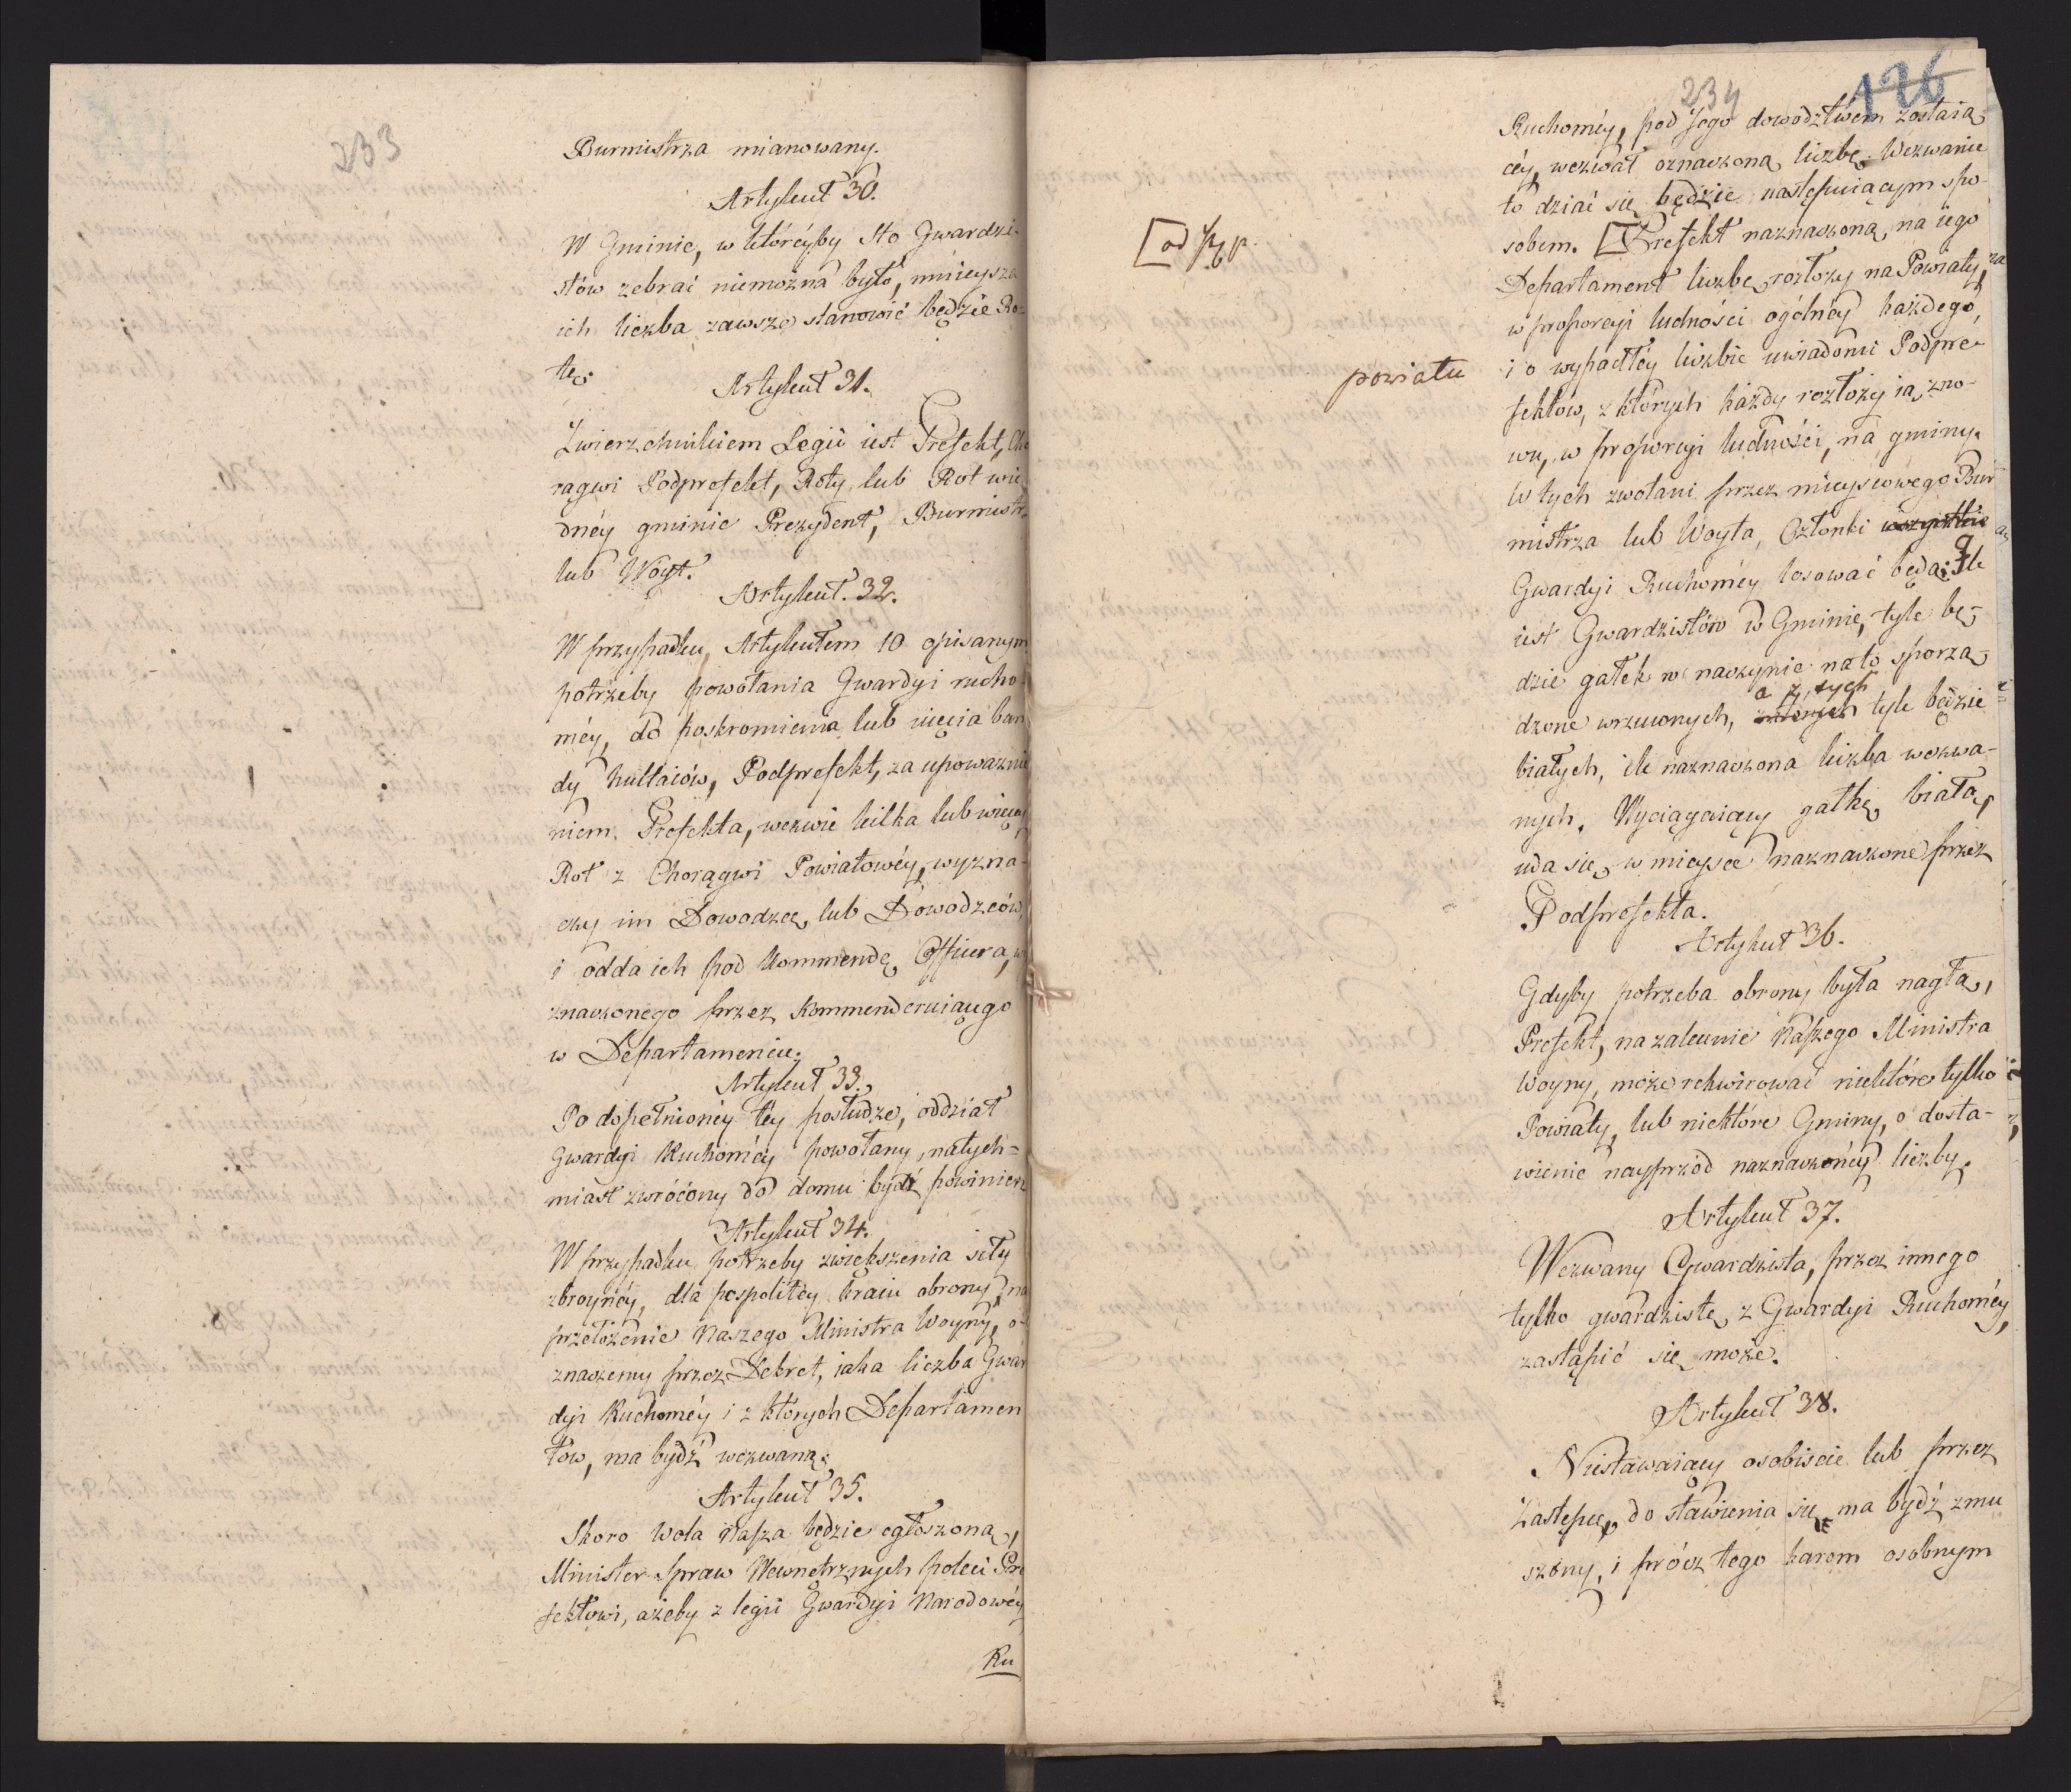 233
Burmistrza mianowany.
Artykuł 30.
W Gminie, w któréyby Sto Gwardzi-
stów zebrać niemożna było, mnieysza
ich liczba zawsze stanowić będzie Ro-
tę.
Artykuł 31.
Zwierzchnikiem Legii iest Prefekt, Cho
rągwi Podprefekt, Roty lub Rot wie
dnéy gminie Prezydent, Burmistrz
lub Wóyt.
Artykuł. 32.
W przypadku, Artykułem 10 opisanym
potrzeby powołania Gwardyi rucho
méy, do poskromienia lub ujęcia ban
dy hultaiów, Podprefekt, za upoważnie
niem Prefekta, wezwie kilka lub więcey
Rot z Chorągwi Powiatowéy, wyzna-
czy im Dowodzcę, lub Dowodzców,
i odda ich pod Kommendę Officera, wy
znaczonego przez Kommenderuiącego
w Departamencie.
Artykuł 33.
Po dopełnionéy téy posłudze, oddział
Gwardyi Ruchoméy powołany, natych=
miast zwrócony do domu bydź powinien
Artykuł 34.
W przypadku potrzeby zwiększenia siły
zbroynéy, dla pospolitéy kraiu obrony, na
przełożenie Naszego Ministra Woyny, o-
znaczemy przez Dekret, iaka liczba Gwar
dyi Ruchoméy i z których Departamen
tów, ma bydź wezwaną.
Artykuł 35.
Skoro Wola Nasza będzie ogłoszoną,
Minister Spraw Wewnętrznych poleci Pre
fektowi, ażeby z legii Gwardyi Narodowéy
Ru
234
126
Ruchoméy, pod Jego dowództwem zostaią
céy, wezwał oznaczoną liczbę. Wezwanie
to dziać się będzie następuiącym spo-
sobem. [Prefekt naznaczoną, na iego
[od
Departament liczbę, rozłoży na Powiaty,
w proporcyi ludności ogólnéy każdego,
powiatu
i o wypadłéy liczbie uwiadomi Podpre-
fektów, z których każdy rozłoży ią, zno-
wu, w proporcyi ludności, na gminy.
W tych zwołani przez mieyscowego Bur
mistrza lub Woyta, Członki wszystkie
Gwardyi Ruchoméy losować będą; Ile
iest Gwardzistów w Gminie, tyle bę-
dzie gałek w naczynie na to sporzą-
a z tych
dzone wrzuconych, z których tyle będzie
białych, ile naznaczona liczba wezwa-
nych. Wyciągaiący gałkę białą,
uda się w mieysce naznaczone przez
Podprefekta.
Artykuł 36.
Gdyby potrzeba obrony była nagłą,
Prefekt, na zalecenie Naszego Ministra
Woyny, może rekwirować niektóre tylko
Powiaty, lub niektóre Gminy, o dosta-
wienie nayprzód naznaczonéy liczby.
Artykuł 37.
Wezwany Gwardzista, przez innego
tylko gwardzistę z Gwardyi Ruchoméy,
zastąpić się może.
Artykuł 38.
Niestawaiący osobiscie lub przez
Zastępcę, do stawienia się ma bydź zmu
szony, i prócz tego karom osobnym